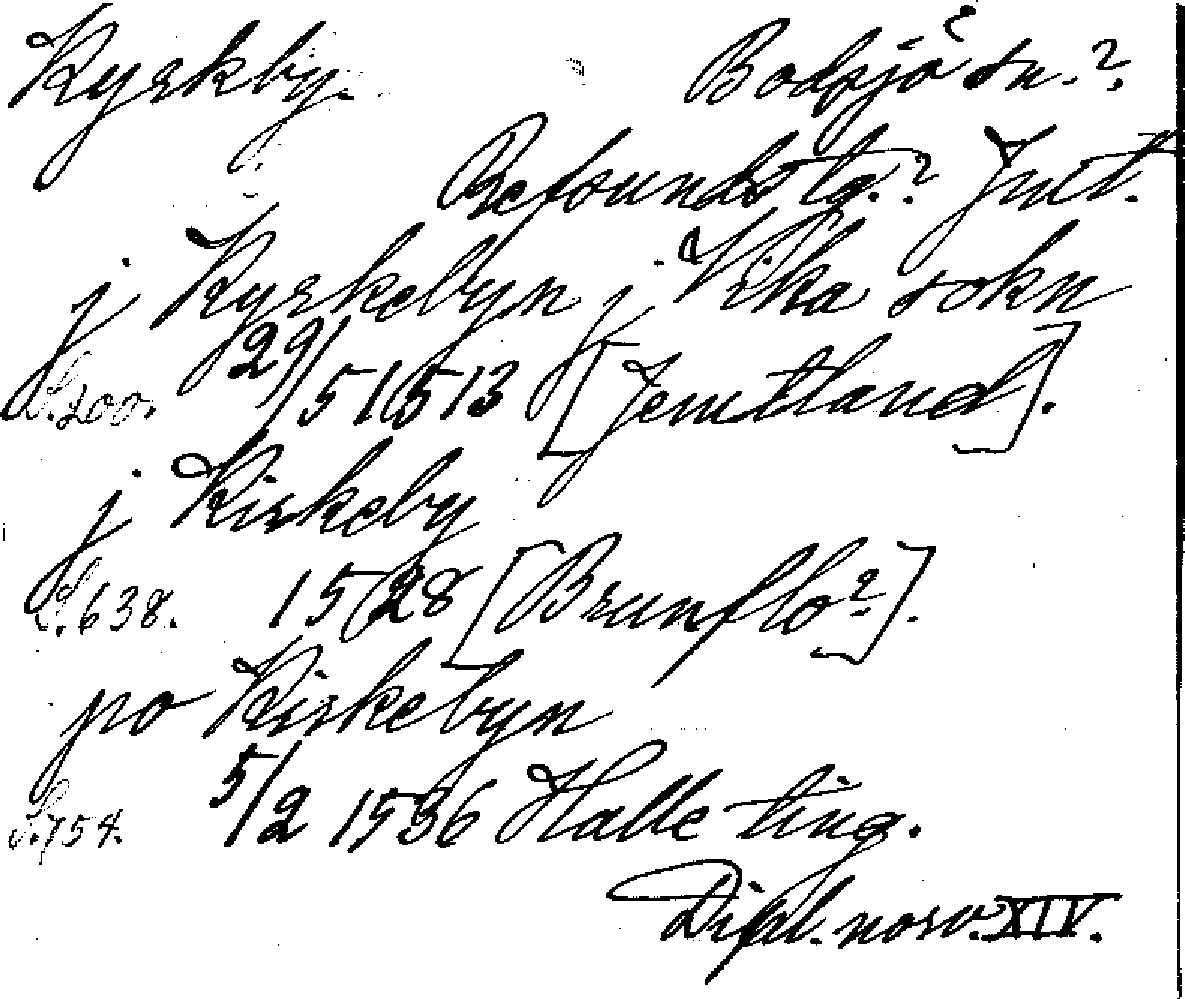 Kyrkby. Bodsjö sn.?
Refsunds tg.? Jmt.
j Kyrkebyn j Vika sokn
S. 200. 29/5 1513 [Jemtland].
j Kirkeby
S. 638. 1528 [Brunflo?].
po Kirkebyn
S. 754. 5/2 1536 Halle ting.
Dipl. norv. XIV.